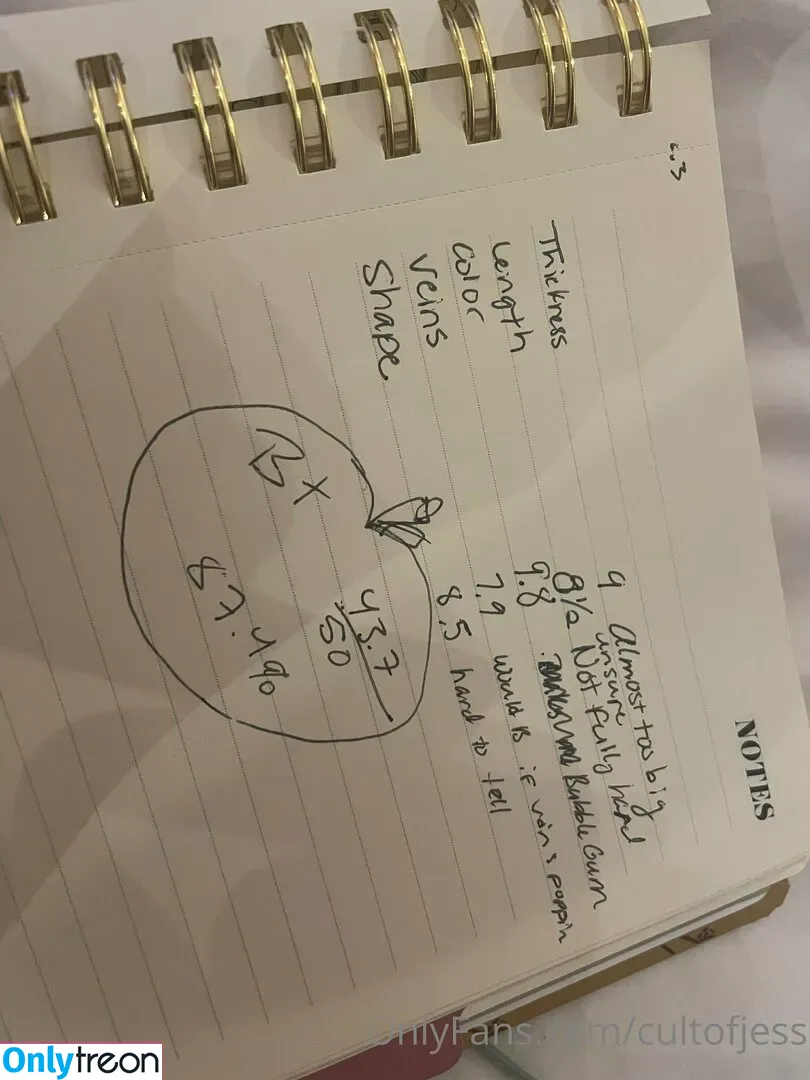 NOTES
6.3
Thickness 9 Almost too big
Length 8½ unsure Not fully hard
Color 9.8 Bubble Gum
Veins 7.9 would B if veins poppin
Shape 8.5 hard to tell
43.7
50
87.4%
OnlyFans.com/cultofjess
Onlytreon